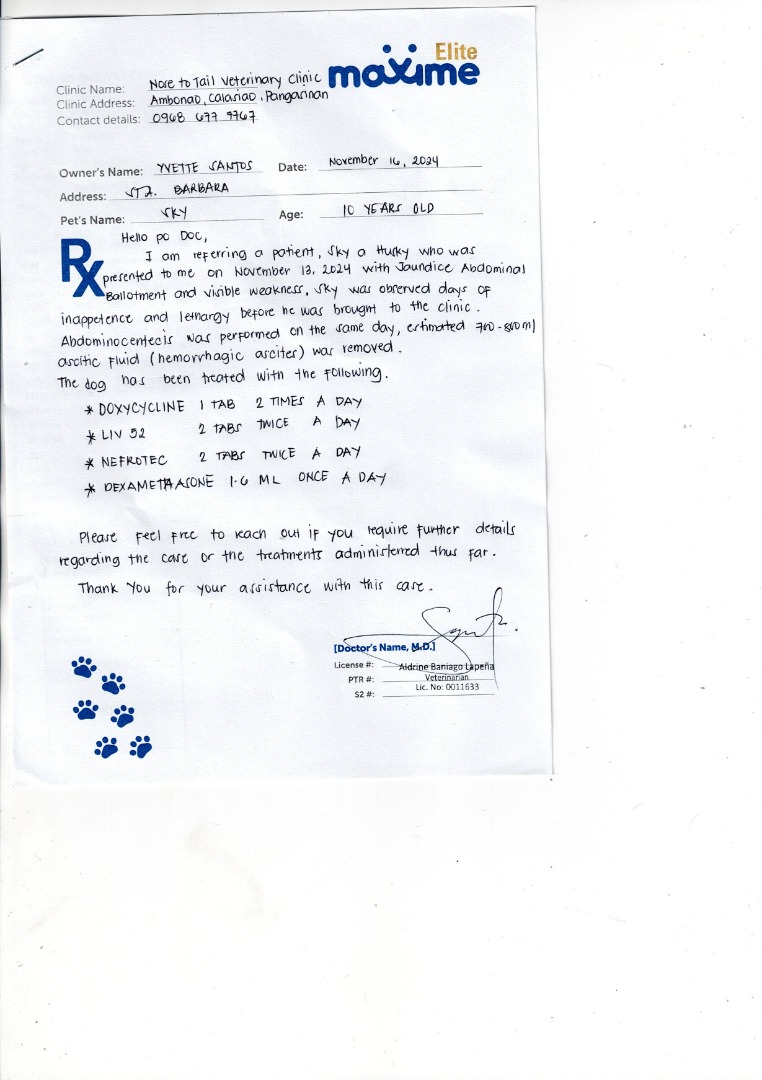 Elite
maxime
Clinic Name: Nose to Tail Veterinary Clinic
Clinic Address: Ambonao, Calasiao, Pangasinan
Contact details: 0968 677 9767
Owner's Name: YVETTE SANTOS Date: November 16, 2024
Address: STA. BARBARA
Pet's Name: SKY Age: 10 YEARS OLD
Rx
Hello po Doc,
I am referring a patient, Sky a Husky who was
presented to me on November 13, 2024 with Jaundice Abdominal
Ballotment and visible weakness, Sky was observed days of
inappetence and lethargy before he was brought to the clinic.
Abdominocentecis was performed on the same day, estimated 700-800ml
ascitic fluid (hemorrhagic ascites) was removed.
The dog has been treated with the following.
* DOXYCYCLINE 1 TAB 2 TIMES A DAY
* LIV 52 2 TABS TWICE A DAY
* NEFROTEC 2 TABS TWICE A DAY
* DEXAMETHASONE 1.6 ML ONCE A DAY
Please feel free to reach out if you require further details
regarding the case or the treatments administered thus far.
Thank You for your assistance with this case.
[Doctor's Name, M.D.]
License #: Aldrine Baniago Lapeña
PTR #: Veterinarian
S2 #: Lic. No: 0011633